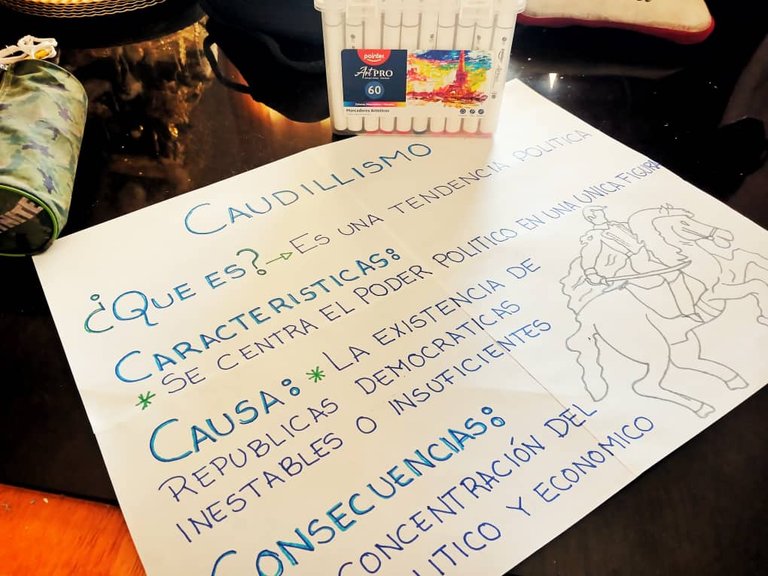 pointer
Art PRO
60
Marcadores Artísticos
CAUDILLISMO
¿QUE ES?→ES UNA TENDENCIA POLITICA
CARACTERISTICAS:
* SE CENTRA EL PODER POLITICO EN UNA UNICA FIGURA
CAUSA: * LA EXISTENCIA DE
REPUBLICAS DEMOCRATICAS
INESTABLES O INSUFICIENTES
CONSECUENCIAS:
CONCENTRACIÓN DEL
LITICO Y ECONOMICO